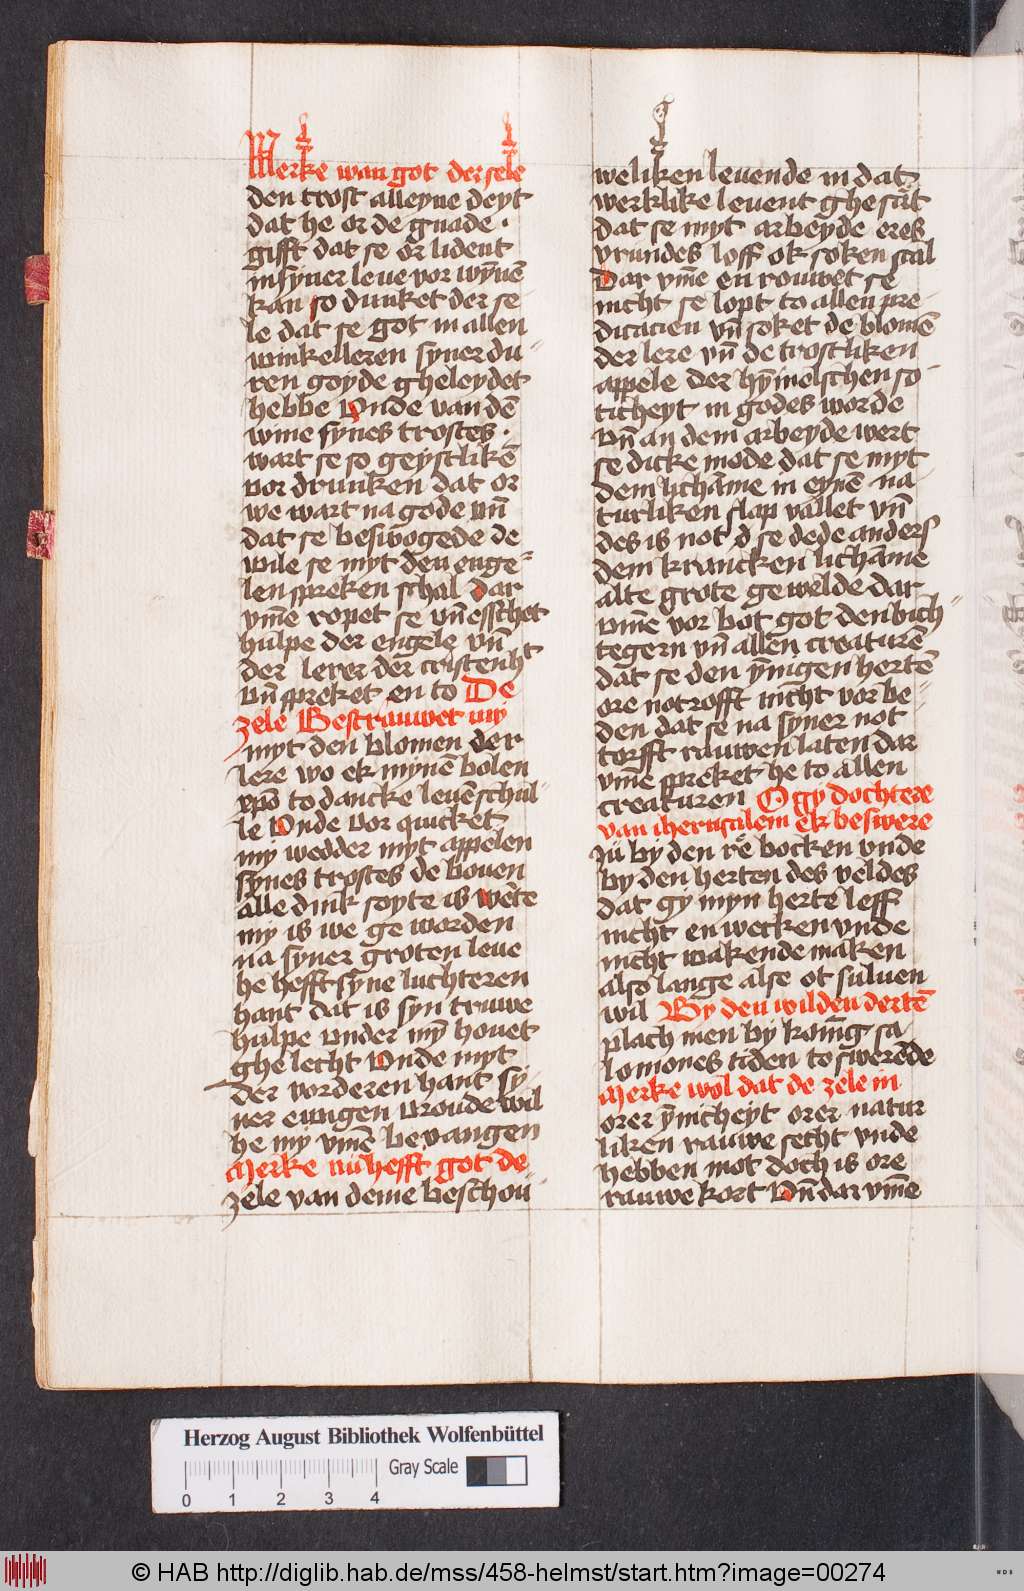 Merke wan got der sele
den trost alleyne deyt
dat he or de gnade ·
gifft dat se or lident
in syner leue vor wy̅ne̅
kan so dunket der se
le dat se got in allen
winkelleren syner du-
ren goyde gheleydet
hebbe Vnde van de̅
wine synes trostes ·
wart se so geystlike̅
vor drunken dat or
we wart na gode vn̅
dat se beswogede de
wile se myt den enge-
len spreken schal dar
vm̅e ropet se vn̅ esschet
hulpe der engele vn̅
der lerer der cristenht
vn̅ spreket en to De
zele Bestrauwet my
myt den blomen der
lere wo ek myne̅ bolen
xpo̅ to dancke leue̅ schul-
le Vnde vor quicket
my wedder myt appelen
synes trostes de bouen
alle dink soyte is wete
my is we ge worden
na syner groten leue
he hefft syne luchteren
hant dat is syn truwe
hulpe vnder my̅ houet
ghe lecht Vnde myt
der vorderen hant sy-
ner ewigen vroude wil
he my vm̅e bevangen
Merke nu hefft got de
zele van deme beschou-
weliken leuende in dat
werklike leuent ghe sat
dat se myt arbeyde eres
vrundes loff ok soken scal
Dar vm̅e en rouwet se
nicht se lopt to allen pre-
dicacien vn̅ soket de blome̅
der lere vn̅ de trostliken
appele der hy̅melschen so-
ticheyt in godes worde
vn̅ an dem arbeyde wert
se dicke mode dat se myt
dem licha̅me in eyne̅ na
turliken slap vallet vn̅
des is not d se dede anders
dem krancken licha̅me
alte grote gewelde dar
vm̅e vor bot got den bich-
tegern vn̅ allen creature̅
dat se den y̅nigen herte̅
ore notrofft nicht vor be-
den dat se na syner not-
torfft rauwen laten dar
vm̅e spreket he to allen
creaturen O gy dochtere
van iherusalem ek beswere
Ju by den re bocken vnde
by den herten des veldes
dat gy myn herte leff
nicht en wecken vnde
nicht wakende maken
also lange alse ot suluen
wil By den wilden derte̅
plach men by koni̅g sa
lomones tiden to swere̅de
Merke wol dat de zele in
orer y̅nicheyt orer natur
liken rauwe secht vnde
hebben mot doch is ore
rauwe kort Vn̅ dar vm̅e
Herzog August Bibliothek Wolfenbüttel
Gray Scale
0 1 2 3 4
© HAB http://diglib.hab.de/mss/458-helmst/start.htm?image=00274